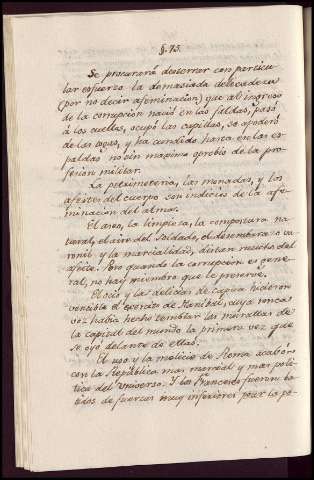 §. 75.
Se procurará desterrar con particu-
lar esfuerzo la demasiada delicadeza
(por no decir afeminacion) que al ingreso
de la corrupcion nació en las faldas, pasó
á los cuellos, ocupó las cupillas, se apoderó
de las botas, y ha cundido hasta en las es-
paldas no sin maximo oprobio de la pro-
fesion militar.
La petimeteria, las monadas, y los
afeites del cuerpo son indicios de la afe-
minacion del alma.
El aseo, la limpieza, la compostura na-
tural, el aire del soldado, el desembarazo va-
ronil y la marcialidad, distan mucho del
afeite. Pero quando la corrupcion es gene-
ral, no hay miembro que se preserve.
El ocio y las delicias de Capua hicieron
vencible el exercito de Hanibal, cuya ronca
voz habia hecho temblar las murallas de
la capital del mundo la primera vez que
se oyó delante de ellas.
El uso y la molicie de Roma acabó
con la Republica mas marcial y mas poli-
tica del universo. Y los Franceses fueron ba-
tidos de fuerzas muy inferiores por la po-